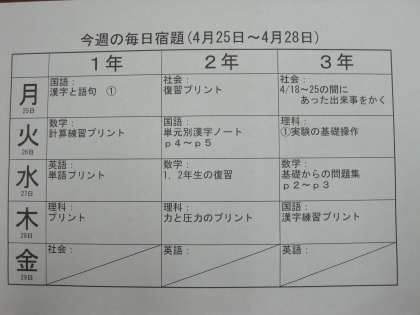 今週の毎日宿題(4月25日～4月28日)
１年 ２年 ３年
月
25日
国語：
漢字と語句　①
社会：
復習プリント
社会：
4/18～25の間に
あった出来事をかく
火
26日
数学：
計算練習プリント
国語：
単元別漢字ノート
ｐ４～ｐ５
理科：
①実験の基礎操作
水
27日
英語：
単語プリント
数学：
１，２年生の復習
数学：
基礎からの問題集
ｐ２～ｐ３
木
28日
理科：
プリント
理科：
力と圧力のプリント
国語：
漢字練習プリント
金
29日
社会：
英語：
英語：